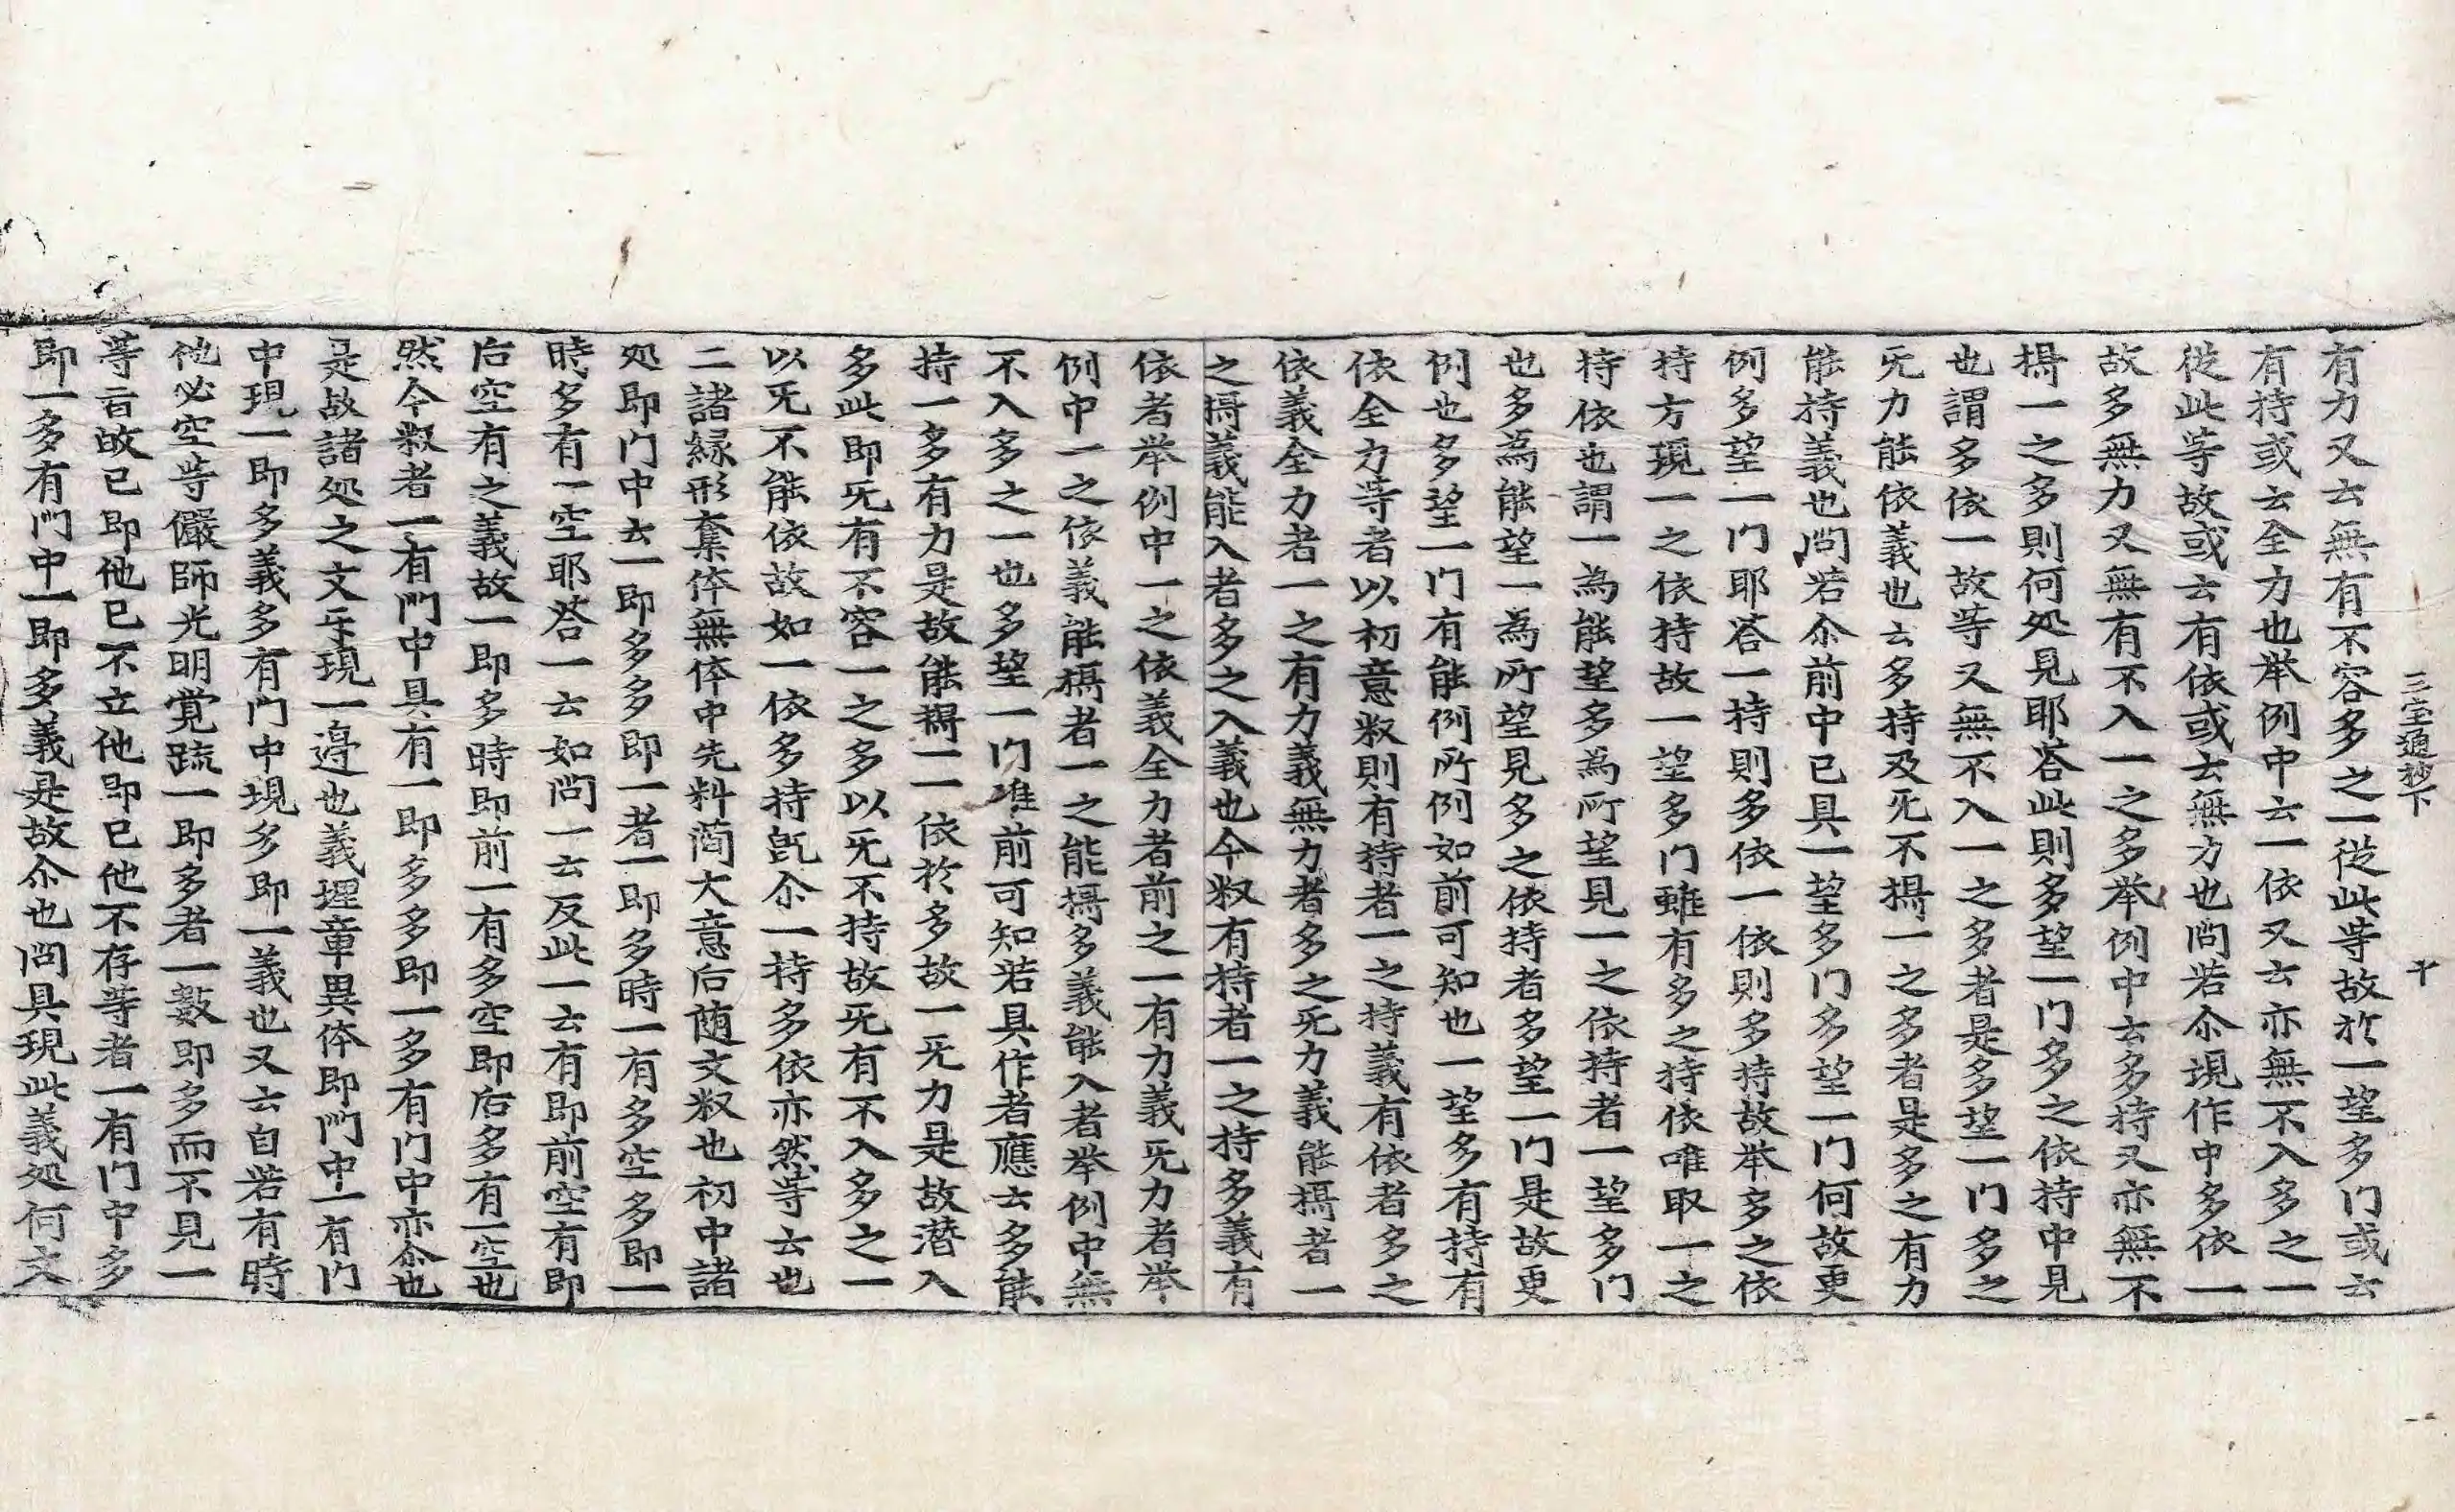 三宝通抄下　十
有力又云無有不容多之一從此等故於一望多门或云
有持或云全力也举例中云一依又云亦無不入多之一
從此等故或云有依或云無力也問若尒現作中多依一
故多無力又無有不入一之多举例中云多持又亦無不
攝一之多則何処見耶荅此則多望一门多之依持中見
也謂多依一故等又無不入一之多者是多望一门多之
旡力能依義也云多持及旡不攝一之多者是多之有力
能持義也問若尒前中已具一望多门多望一门何故更
例多望一门耶荅一持則多依一依則多持故举多之依
持方現一之依持故一望多门雖有多之持依唯取一之
持依也謂一為能望多為所望見一之依持者一望多门
也多為能望一為所望見多之依持者多望一门是故更
例也多望一门有能例所例如前可知也一望多有持有
依全力等者以初意釈則有持者一之持義有依者多之
依義全力者一之有力義無力者多之旡力義能攝者一
之攝義能入者多之入義也今釈有持者一之持多義有
依者举例中一之依義全力者前之一有力義旡力者举
例中一之依義能攝者一之能攝多義能入者举例中無
不入多之一也多望一门准前可知若具作者應云多能
持一多有力是故能攝一一依於多故一旡力是故潛入
多此即旡有不容一之多以旡不持故旡有不入多之一
以旡不能依故如一依多持旣尒一持多依亦然等云也
二諸緣形奪体無体中先料䕃大意后随文釈也初中諸
処即门中云一即多多即一者一即多時一有多空多即一
時多有一空耶荅一云如問一云反此一云有即前空有即
后空有之義故一即多時即前一有多空即后多有一空也
然今釈者一有門中具有一即多多即一多有门中亦尒也
是故諸処之文乐現一邉也義理章異体即門中一有门
中現一即多義多有门中現多即一義也又云自若有時
他必空等儼師光明覺䟽一即多者一數即多而不見一
等言故已即他已不立他即已他不存等者一有门中多
即一多有門中一即多義是故尒也問具現此義処何文